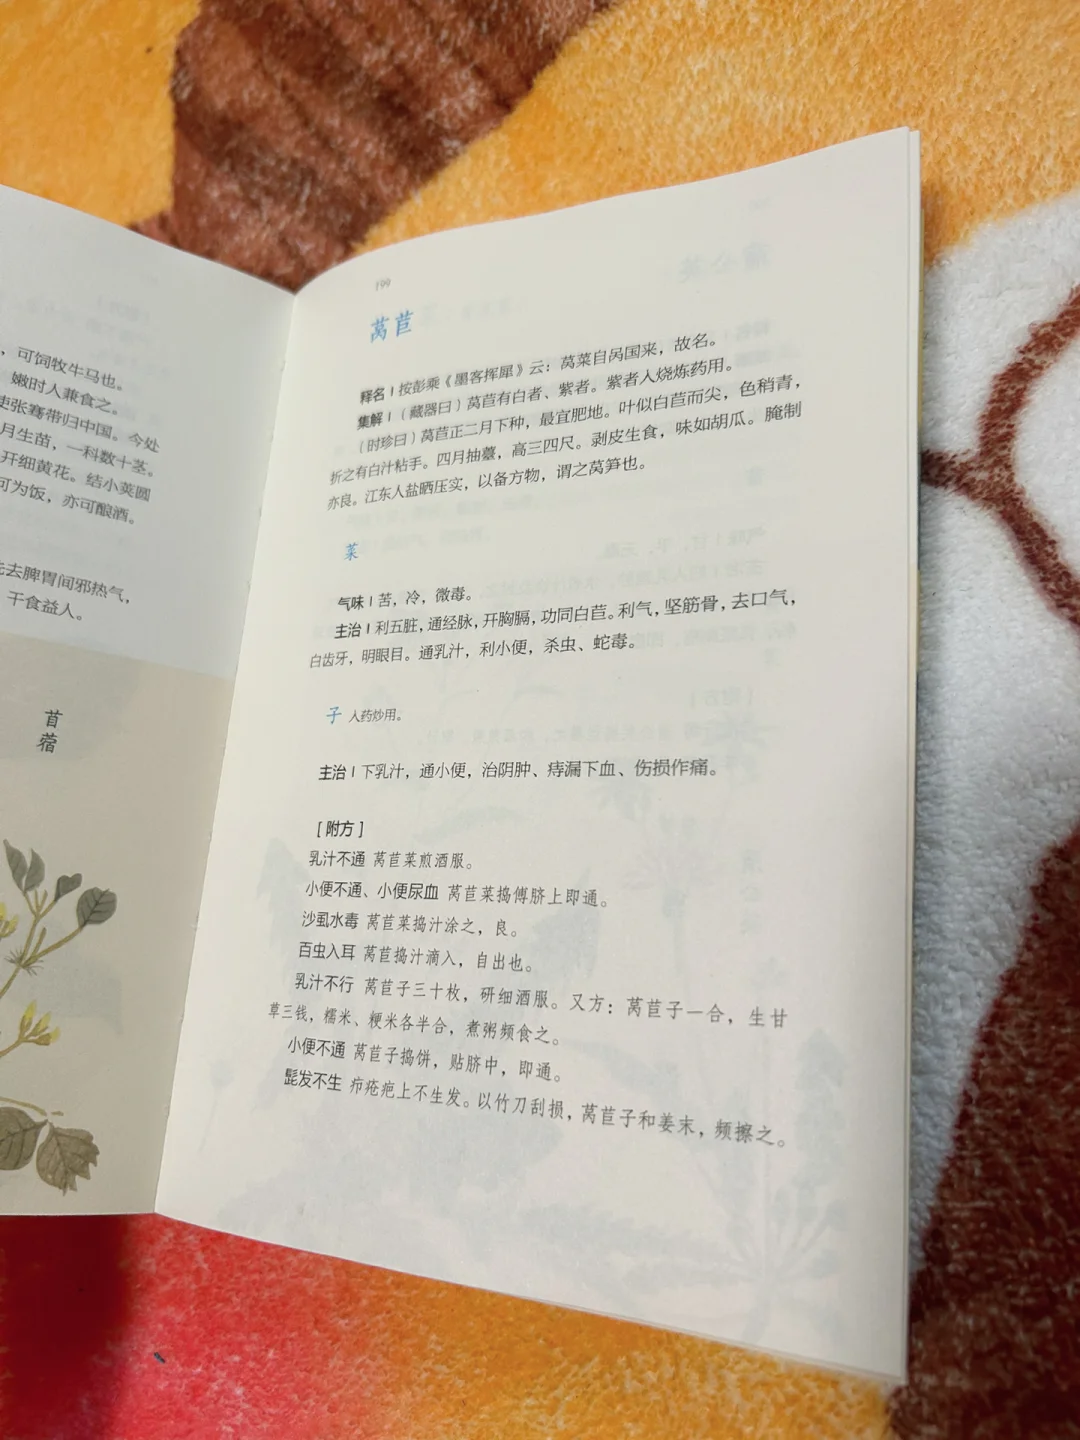 ，可饲牧牛马也。
嫩时人兼食之。
使张骞带归中国。今处
月生苗，一科数十茎。
开细黄花。结小荚圆
可为饭，亦可酿酒。
先去脾胃间邪热气，
干食益人。
苜
蓿
199
莴苣
释名|按彭乘《墨客挥犀》云：莴菜自呙国来，故名。
集解|（藏器曰）莴苣有白者、紫者。紫者入烧炼药用。
（时珍曰）莴苣正二月下种，最宜肥地。叶似白苣而尖，色稍青，
折之有白汁粘手。四月抽薹，高三四尺。剥皮生食，味如胡瓜。腌制
亦良。江东人盐晒压实，以备方物，谓之莴笋也。
菜
气味|苦，冷，微毒。
主治|利五脏，通经脉，开胸膈，功同白苣。利气，坚筋骨，去口气，
白齿牙，明眼目。通乳汁，利小便，杀虫、蛇毒。
子 入药炒用。
主治|下乳汁，通小便，治阴肿、痔漏下血、伤损作痛。
[附方]
乳汁不通 莴苣菜煎酒服。
小便不通、小便尿血 莴苣菜捣傅脐上即通。
沙虱水毒 莴苣菜捣汁涂之，良。
百虫入耳 莴苣捣汁滴入，自出也。
乳汁不行 莴苣子三十枚，研细酒服。又方：莴苣子一合，生甘
草三钱，糯米、粳米各半合，煮粥频食之。
小便不通 莴苣子捣饼，贴脐中，即通。
髭发不生 疖疮疤上不生发。以竹刀刮损，莴苣子和姜末，频擦之。